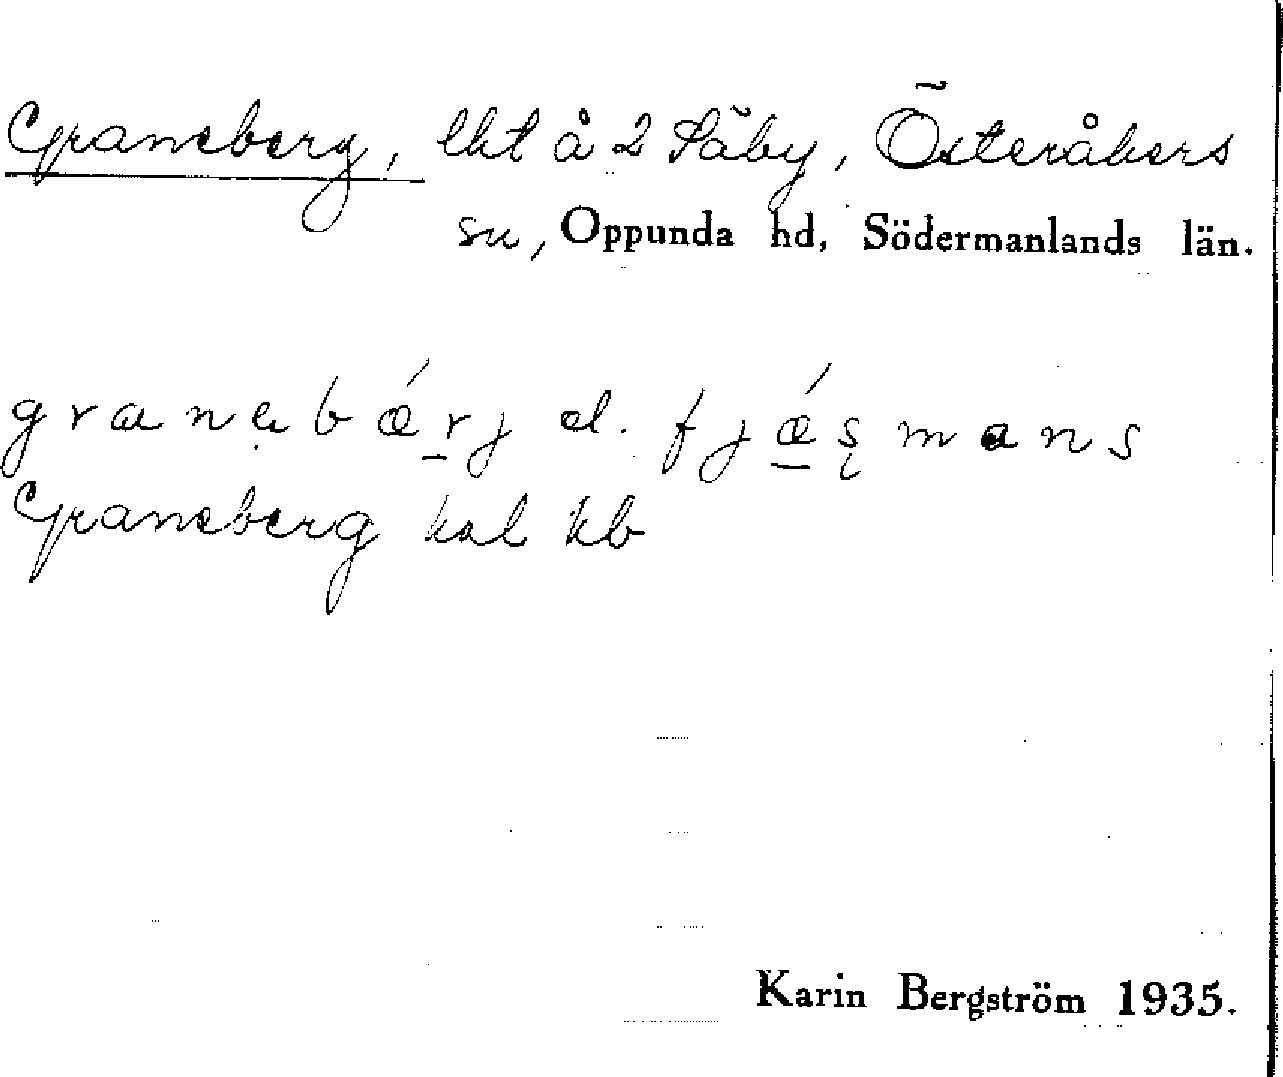 Graneberg, lht å 2 Säby, Österåkers
su, Oppunda hd, Södermanlands län.
granebǽrj el. fjǽsmans
Graneberg hal kb
Karin Bergström 1935.